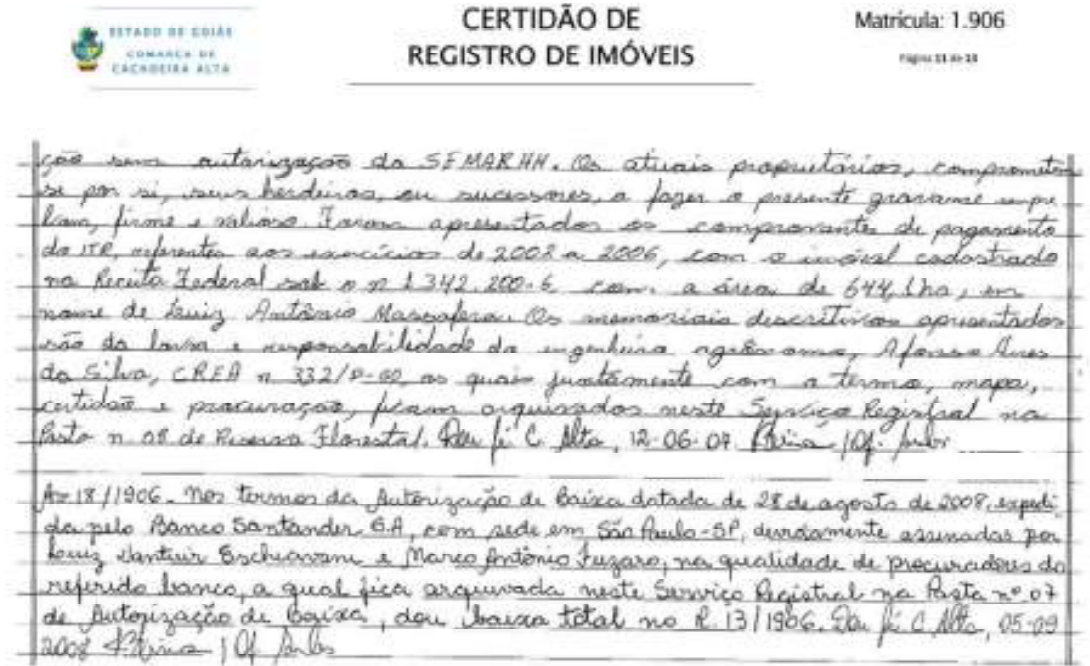 ESTADO DE GOIÁS
COMARCA DE
CACHOEIRA ALTA
CERTIDÃO DE
REGISTRO DE IMÓVEIS
Matrícula: 1.906
Página 11 de 13
ção sem autorização da SEMARHH. Os atuais proprietários, comprometem
se por si, seus herdeiros, ou sucessores, a fazer o presente gravame sempre
bom, firme e valioso. Foram apresentados os comprovantes de pagamento
do ITR, referentes aos exercícios de 2002 a 2006, com o imóvel cadastrado
na Receita Federal sob o n 1.342.200-6 com a área de 644,1ha, em
nome de Luiz Antônio Massafera. Os memoriais descritivos apresentados
são da lavra e responsabilidade do engenheiro agrônomo, Afonso
da Silva, CREA n 332/ os quais juntamente com o termo, mapa,
certidão e procuração, ficam arquivados neste Serviço Registral na
Pasta n 08 de Reserva Florestal. Dou fé C. Alta, 12-06-07.
Av-18/1906. Nos termos da Autorização de Baixa datada de 28 de agosto de 2008, expedi
da pelo Banco Santander S.A, com sede em São Paulo-SP, devidamente assinadas por
Luiz e Marco Antônio Fuzaro, na qualidade de procuradores do
referido banco, a qual fica arquivada neste Serviço Registral na Pasta nº 07
de Autorização de Baixa, dou baixa total no R.13/1906. Dou fé C. Alta, 05-09
2008